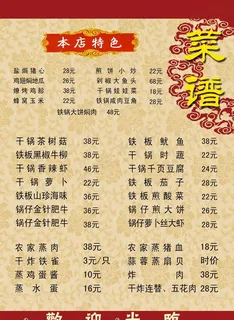 菜谱
本店特色
盐焗猪心 28元 煎饼小炒 22元
鸡翅焖地瓜 26元 剁椒大鱼头 68元
爆烤鸡胗 38元 干锅娃娃菜 18元
蜂窝玉米 22元 铁锅咸肉豆角 28元
铁锅大饼焖肉 48元
干锅茶树菇 38元 铁板鱿鱼 38元
铁板黑椒牛柳 38元 干锅时蔬 22元
干锅香辣虾 46元 干锅千页豆腐 24元
干锅萝卜 22元 铁板茄子 28元
铁板山珍海味 38元 铁板煎酸菜 22元
锅仔金针肥牛 38元 锅仔煎大饼 26元
锅仔金针肥牛 38元 锅仔萝卜丝大虾 28元
农家蒸肉 38元 农家蒸猪血 18元
干炸铁雀 3元/只 蒜蓉蒸扇贝 时价
蒸鸡蛋酱 10元 炸肉 38元
蒸水蛋 16元 干炸连替、五花肉 28元
歡迎光臨